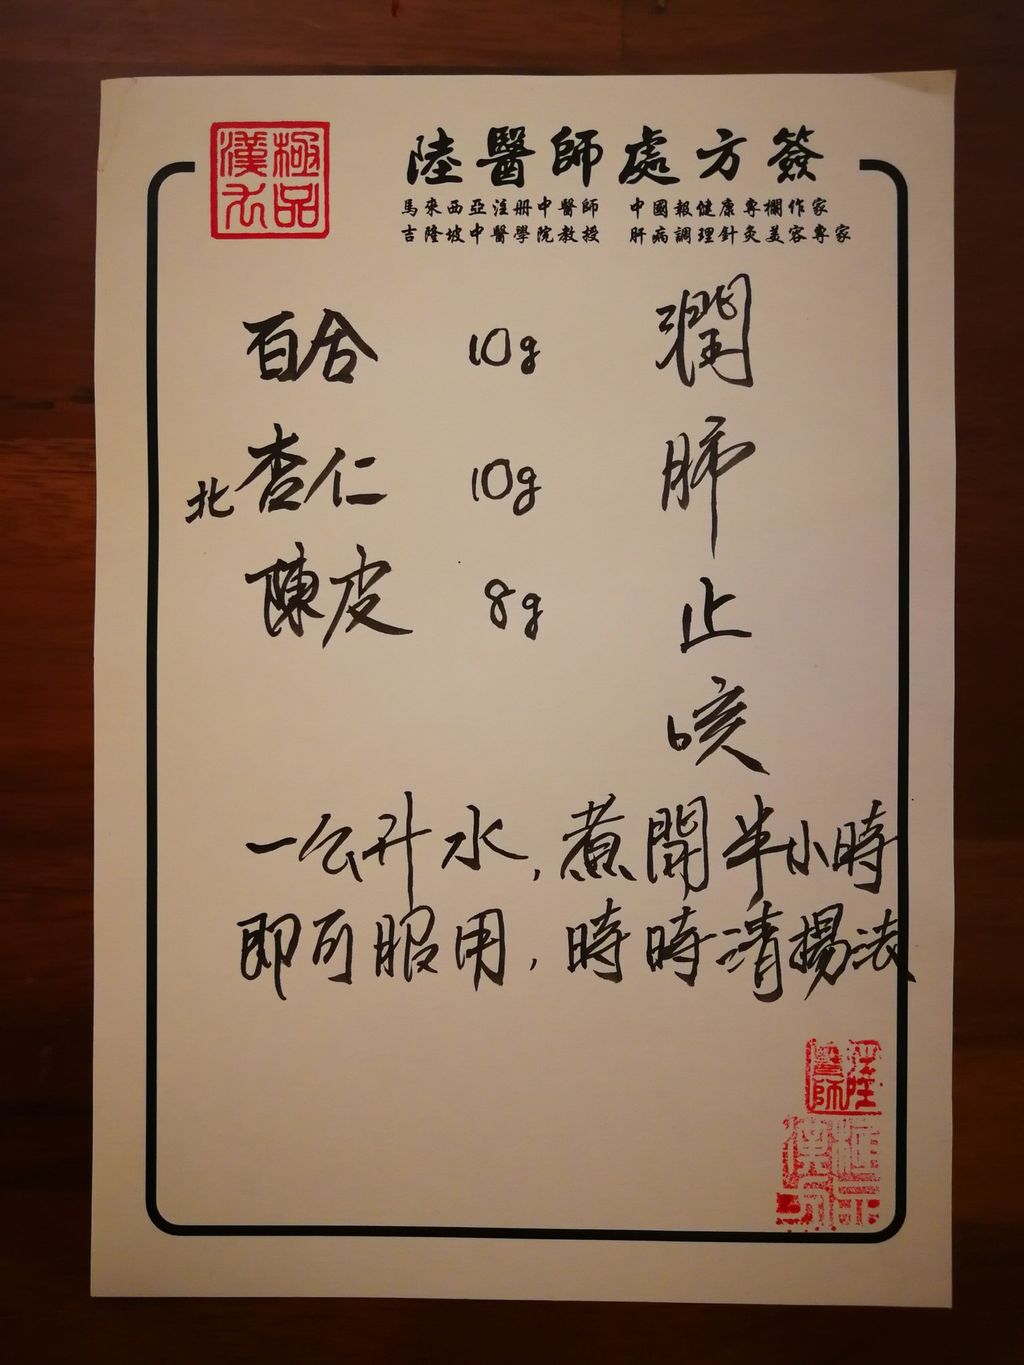 極品漢方
陸醫師處方簽
馬來西亞注冊中醫師 中國報健康專欄作家
吉隆坡中醫學院教授 肝病調理針灸美容專家
百合 10g
北杏仁 10g
陳皮 8g
潤肺止咳
一公升水,煮開半小時
即可服用,時時清揚法
陸醫師
極品漢方